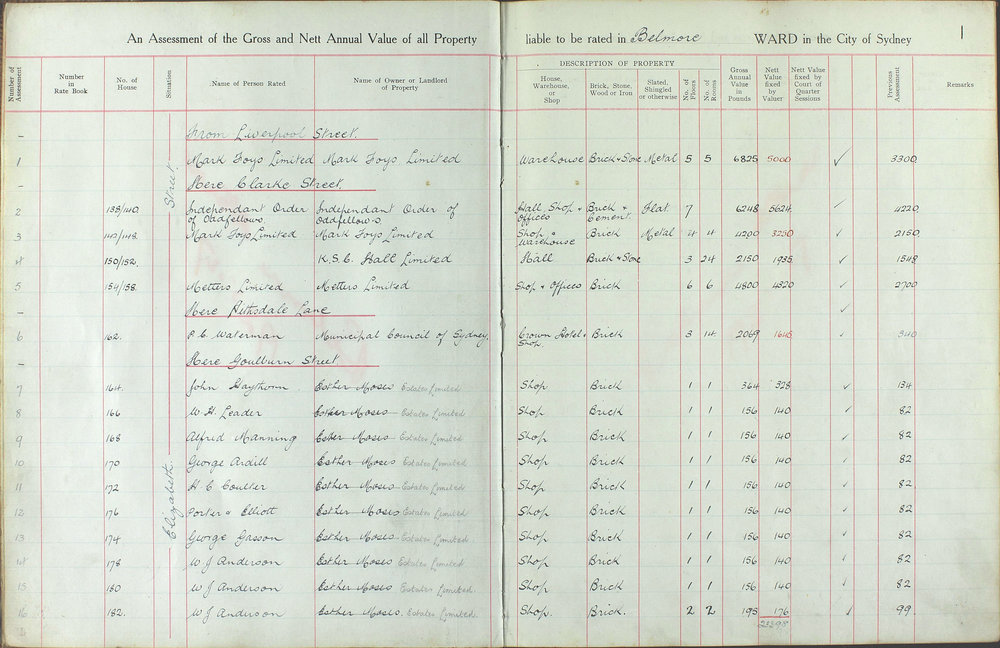 An Assessment of the Gross and Nett Annual Value of all Property liable to be rated in Belmore WARD in the City of Sydney 1
DESCRIPTION OF PROPERTY
Number of Assessment | Number in Rate Book | No. of House | Situation | Name of Person Rated | Name of Owner or Landlord of Property | House, Warehouse, or Shop | Brick, Stone, Wood or Iron | Slated, Shingled or otherwise | No. of Floors | No. of Rooms | Gross Annual Value in Pounds | Nett Value fixed by Valuer | Nett Value fixed by Court of Quarter Sessions | Previous Assessment | Remarks
Elizabeth Street
– From Liverpool Street.
1 Mark Foys Limited Mark Foys Limited Warehouse Brick & Stone Metal 5 5 6825 5000 ✓ 3300
– Here Clarke Street.
2 138/140. Independant Order of Oddfellows Independant Order of Oddfellows Hall Shop & Offices Brick & Cement. Flat 7 6248 5624 ✓ 4220
3 142/148. Mark Foys Limited Mark Foys Limited Shop & Warehouse Brick Metal 4 4 4200 3250 ✓ 2150
4 150/152. K.S.C. Hall Limited Hall Brick & Stone 3 24 2150 1935 ✓ 1548
5 154/158. Metters Limited Metters Limited Shop & Offices Brick 6 6 4800 4320 ✓ 2700
– Here Lane ✓
6 162. P.C. Waterman Municipal Council of Sydney. Crown Hotel & Shop Brick 3 14 2069 1645 ✓ 340
– Here Goulburn Street.
7 164. John Esther Moses Estates Limited Shop Brick 1 1 364 328 ✓ 134
8 166 W H Leader Esther Moses Estates Limited Shop Brick 1 1 156 140 ✓ 82
9 168 Alfred Manning Esther Moses Estates Limited Shop Brick 1 1 156 140 ✓ 82
10 170 George Ardill Esther Moses Estates Limited Shop Brick 1 1 156 140 ✓ 82
11 172 H C Coulter Esther Moses Estates Limited Shop Brick 1 1 156 140 ✓ 82
12 176 Porter & Elliott Esther Moses Estates Limited Shop Brick 1 1 156 140 ✓ 82
13 174 George Gasson Esther Moses Estates Limited. Shop Brick 1 1 156 140 ✓ 82
14 178 W J Anderson Esther Moses Estates Limited. Shop Brick 1 1 156 140 ✓ 82
15 180 W J Anderson Esther Moses Estates Limited. Shop Brick 1 1 156 140 ✓ 82
16 182. W J Anderson Esther Moses Estates Limited. Shop. Brick. 2 2 195 176 ✓ 99